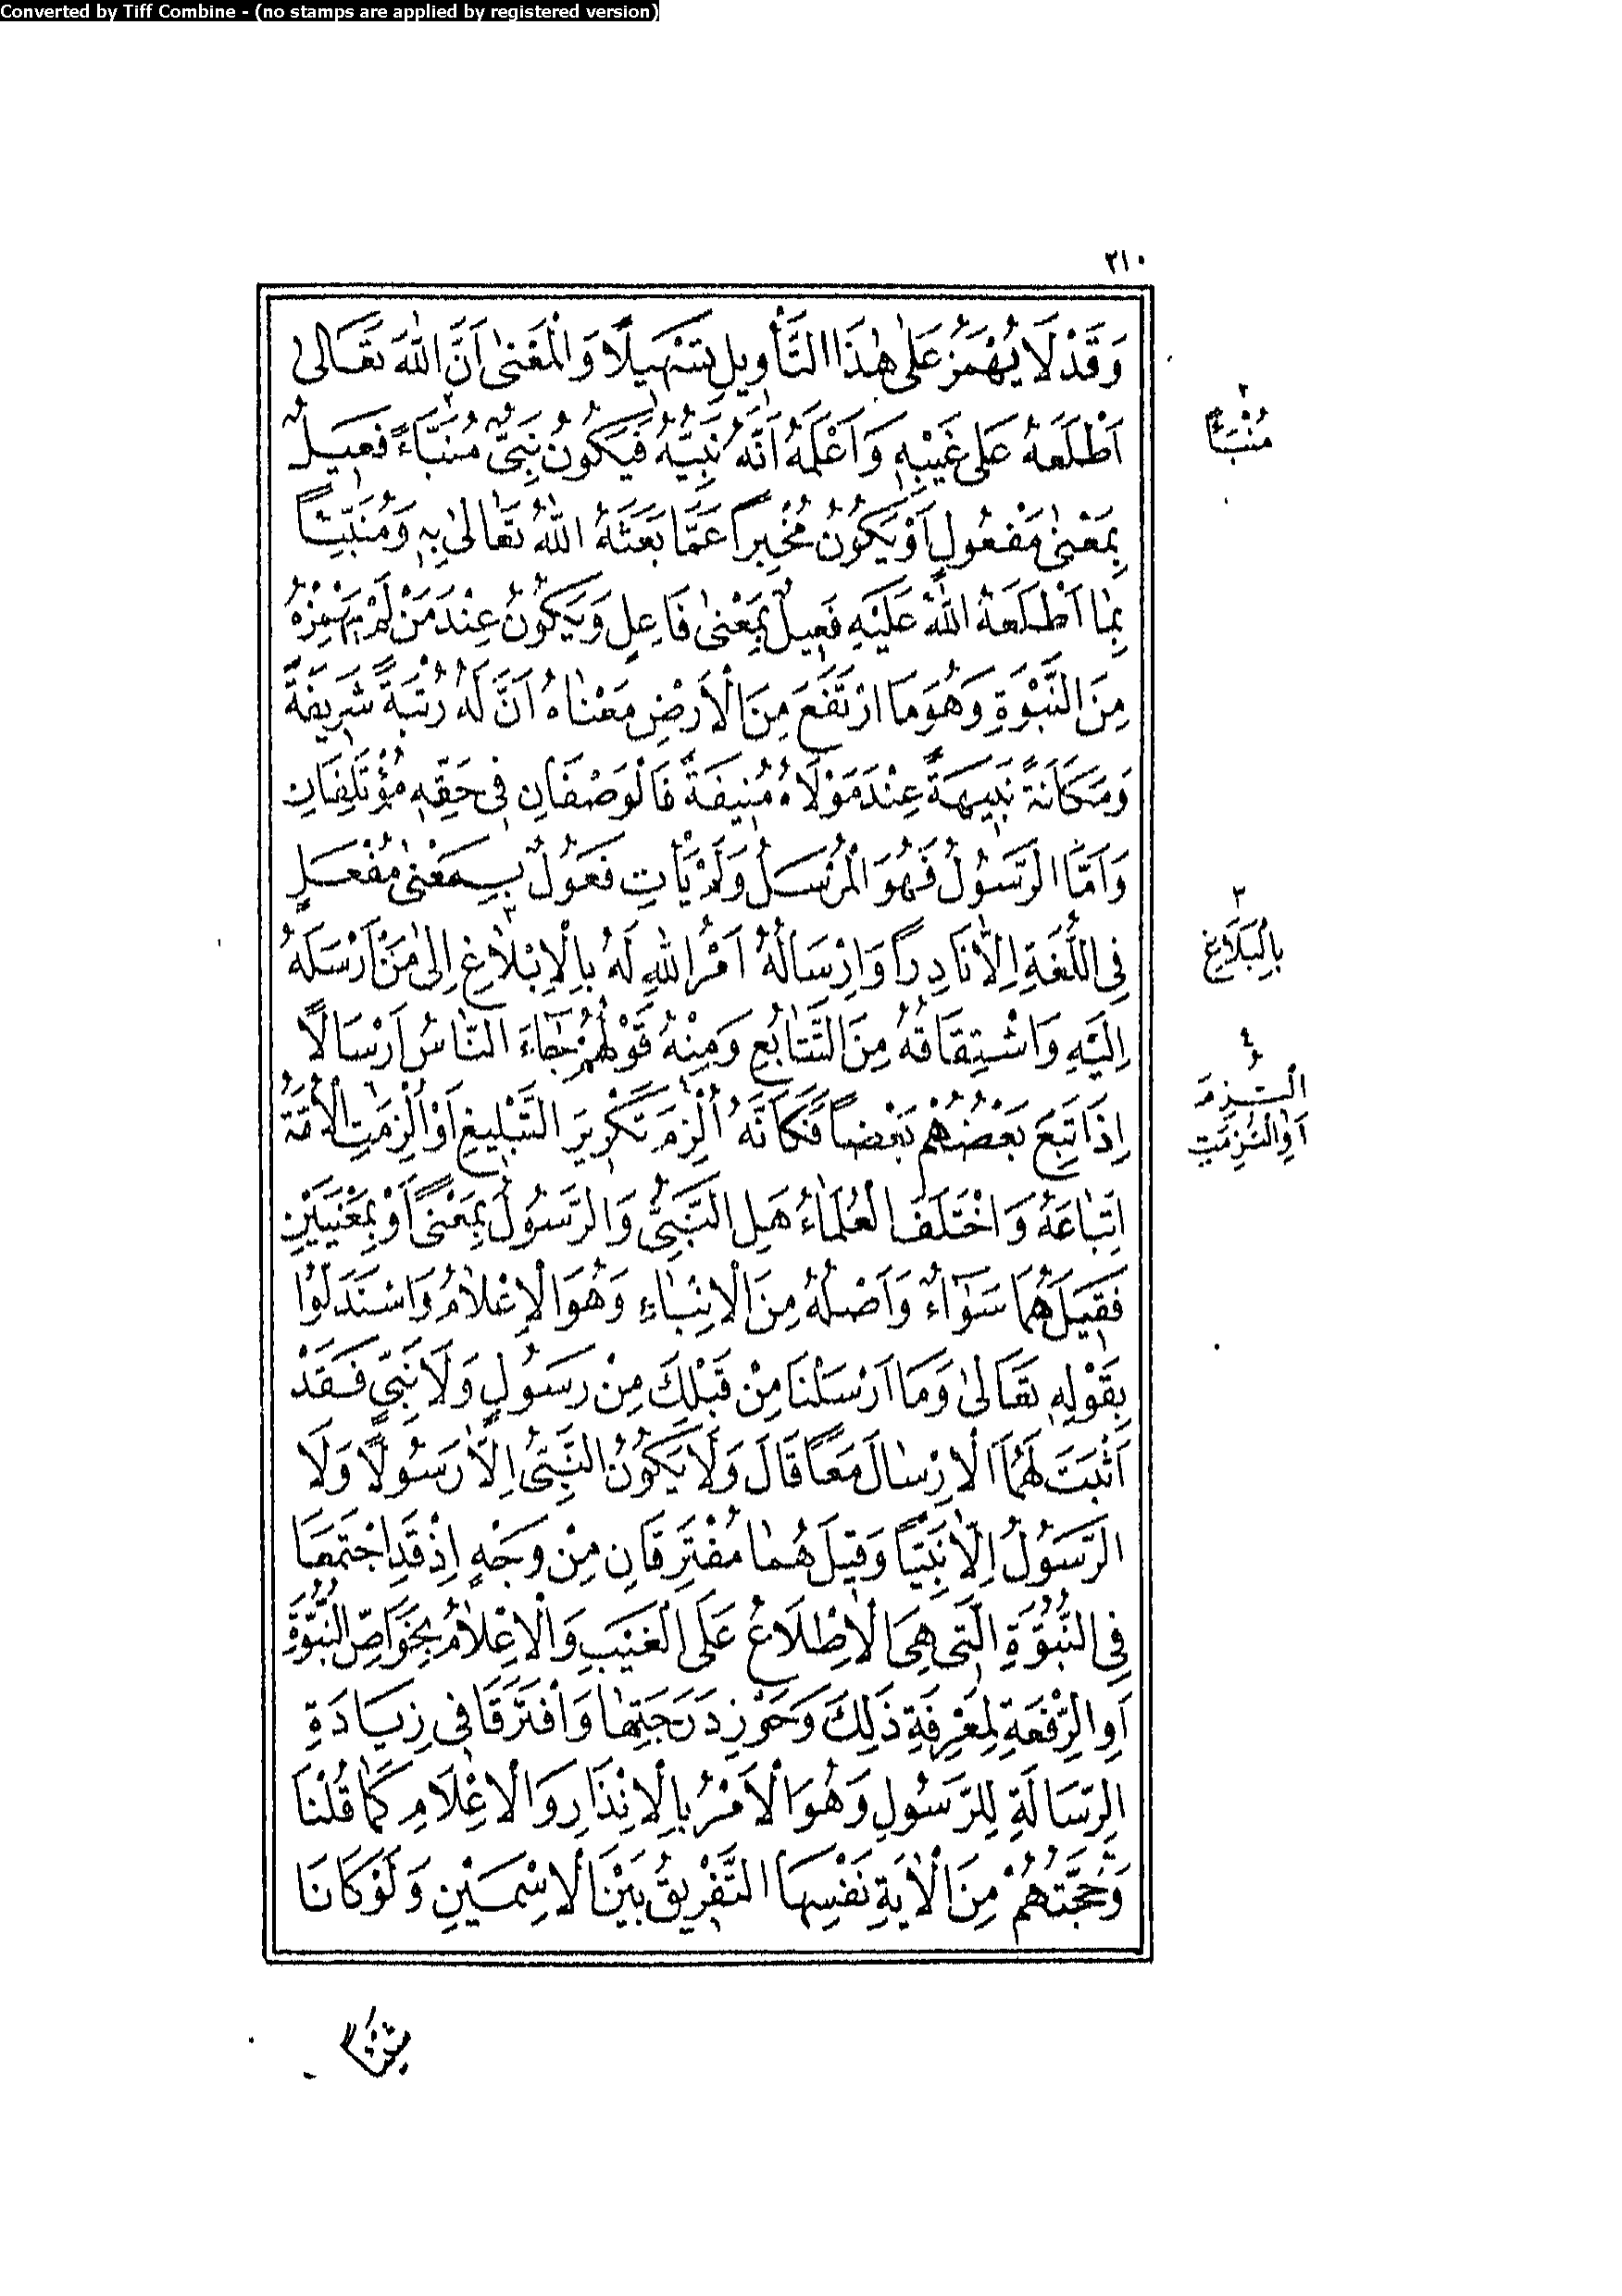 Converted by Tiff Combine - (no stamps are applied by registered version)
٢١٠
وَقَدْ لَا يُهْمَزُ عَلَى هٰذَا التَّأْوِيلِ تَسْهِيلًا وَالْمَعْنٰى اَنَّ اللّٰهَ تَعَالٰى
اَطْلَعَهُ عَلٰى غَيْبِهِ وَاَعْلَمَهُ اَنَّهُ نَبِيُّهُ فَيَكُونُ نَبِيٌّ مُنَبَّاءً فَعِيلٌ
بِمَعْنٰى مَفْعُولٍ اَوْ يَكُونُ مُخْبِرًا عَمَّا بَعَثَهُ اللّٰهُ تَعَالٰى بِهِ وَمُنَبِّئًا
بِمَا اَطْلَعَهُ اللّٰهُ عَلَيْهِ فَعِيلٌ بِمَعْنٰى فَاعِلٍ وَيَكُونُ عِنْدَ مَنْ لَمْ يَهْمِزْهُ
مِنَ النَّبْوَةِ وَهُوَ مَا ارْتَفَعَ مِنَ الْاَرْضِ مَعْنَاهُ اَنَّ لَهُ رُتْبَةً شَرِيفَةً
وَمَكَانَةً نَبِيهَةً عِنْدَ مَوْلَاهُ مُنِيفَةً فَالْوَصْفَانِ فِى حَقِّهِ مُؤْتَلِفَانِ
وَاَمَّا الرَّسُولُ فَهُوَ الْمُرْسَلُ وَلَمْ يَأْتِ فَعُولٌ بِمَعْنٰى مُفْعَلٍ
فِى اللُّغَةِ اِلَّا نَادِرًا وَاِرْسَالُهُ اَمْرُ اللّٰهِ لَهُ بِالْاِبْلَاغِ اِلٰى مَنْ اَرْسَلَهُ
اِلَيْهِ وَاشْتِقَاقُهُ مِنَ التَّتَابُعِ وَمِنْهُ قَوْلُهُمْ جَاءَ النَّاسُ اَرْسَالًا
اِذَا تَبِعَ بَعْضُهُمْ بَعْضًا فَكَاَنَّهُ اُلْزِمَ تَكْرِيرَ التَّبْلِيغِ اَوْ اُلْزِمَتِ الْاُمَّةُ
اتِّبَاعَهُ وَاخْتَلَفَ الْعُلَمَاءُ هَلِ النَّبِيُّ وَالرَّسُولُ بِمَعْنًى اَوْ بِمَعْنَيَيْنِ
فَقِيلَ هُمَا سَوَاءٌ وَاَصْلُهُ مِنَ الْاِنْبَاءِ وَهُوَ الْاِعْلَامُ وَاسْتَدَلُّوا
بِقَوْلِهِ تَعَالٰى وَمَا اَرْسَلْنَا مِنْ قَبْلِكَ مِنْ رَسُولٍ وَلَا نَبِيٍّ فَقَدْ
اَثْبَتَ لَهُمَا الْاِرْسَالَ مَعًا قَالَ وَلَا يَكُونُ النَّبِيُّ اِلَّا رَسُولًا وَلَا
الرَّسُولُ اِلَّا نَبِيًّا وَقِيلَ هُمَا مُفْتَرِقَانِ مِنْ وَجْهٍ اِذْ قَدِ اجْتَمَعَا
فِى النُّبُوَّةِ الَّتِى هِىَ الْاِطْلَاعُ عَلَى الْغَيْبِ وَالْاِعْلَامُ بِخَوَاصِّ النُّبُوَّةِ
اَوِ الرِّفْعَةِ لِمَعْرِفَةِ ذٰلِكَ وَحَوْزِ دَرَجَتِهَا وَافْتَرَقَا فِى زِيَادَةِ
الرِّسَالَةِ لِلرَّسُولِ وَهُوَ الْاَمْرُ بِالْاِنْذَارِ وَالْاِعْلَامِ كَمَا قُلْنَا
وَحُجَّتُهُمْ مِنَ الْاٰيَةِ نَفْسِهَا التَّفْرِيقُ بَيْنَ الْاِسْمَيْنِ وَلَوْ كَانَا
٢
مُنْبَأً
٣
بِالْبَلَاغِ
٤
الْتَزَمَ
اَوِ الْتَزَمَتِ